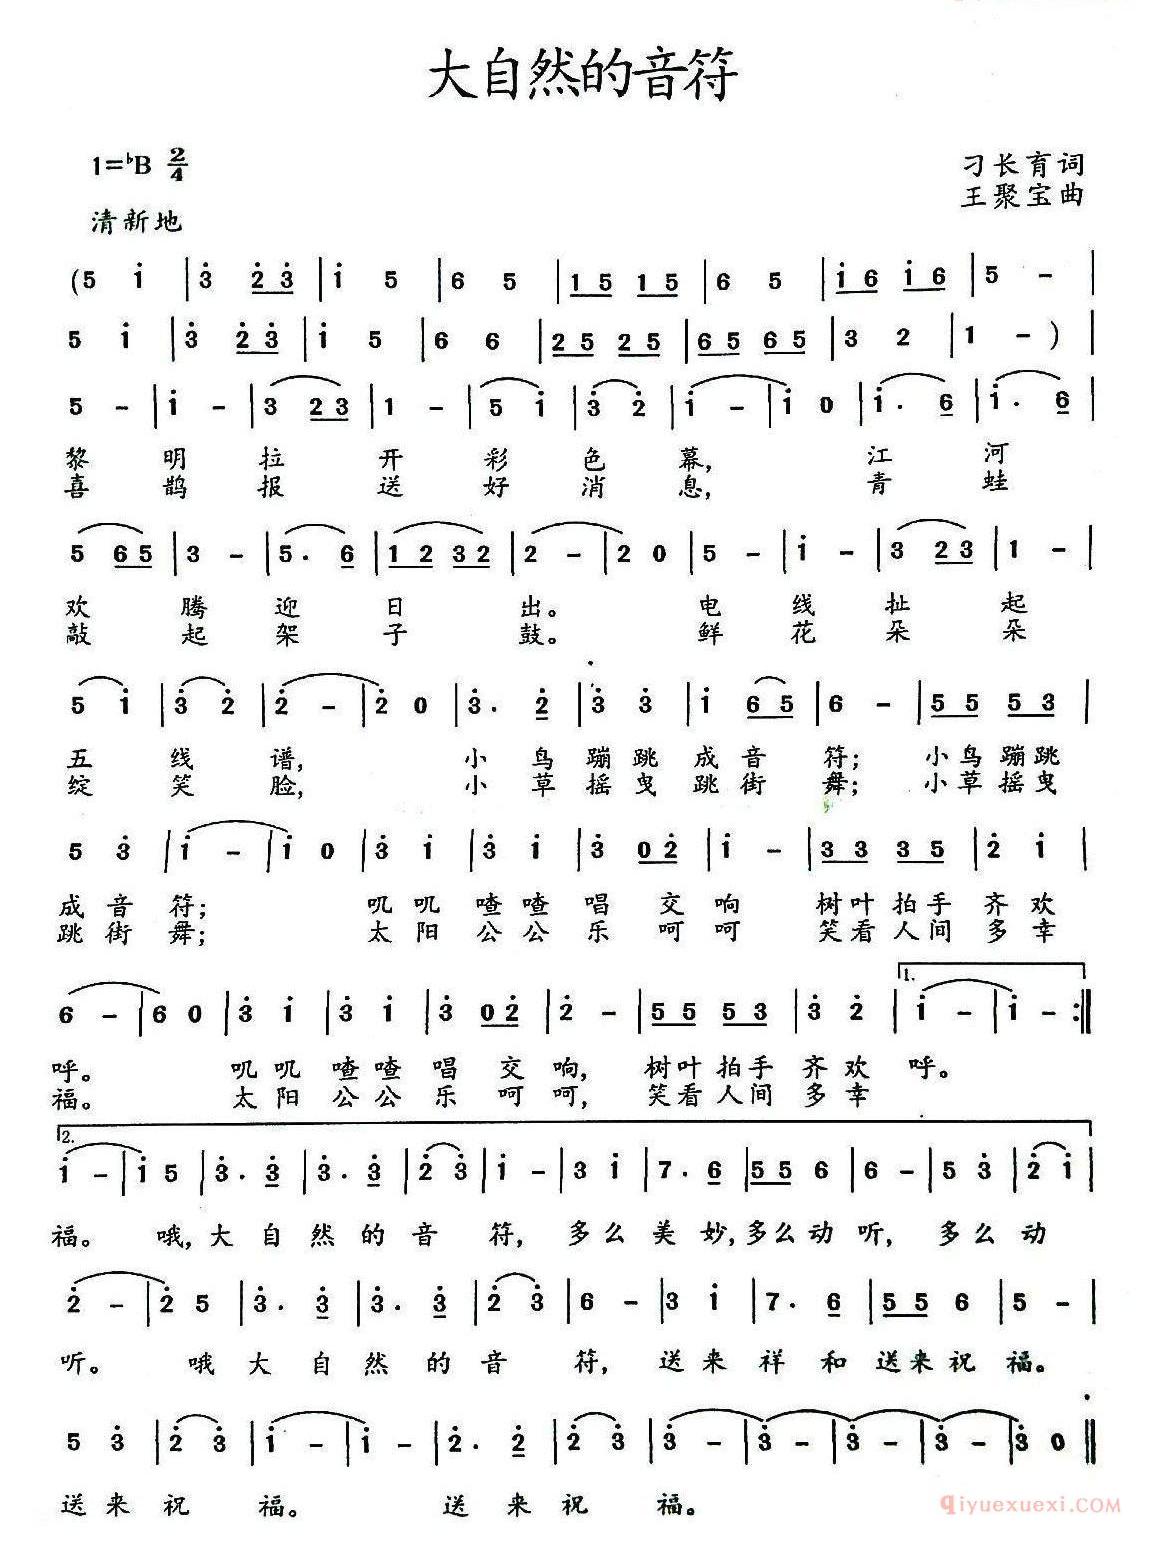 大自然的音符
1=♭B 2/4
刁长育词
王聚宝曲
清新地
(5 i̇ | 3̇ 2̇3̇ | i̇ 5 | 6 5 | 15 15 | 6 5 | i̇6 i̇6 | 5 - |
5 i̇ | 3̇ 2̇3̇ | i̇ 5 | 6 6 | 25 25 | 65 65 | 3 2 | 1 - ) |
5 - | i̇ - | 3 23 | 1 - | 5 i̇ | 3̇ 2̇ | i̇ - | i̇ 0 | i̇. 6 | i̇. 6 |
黎明拉开彩色幕, 江河
喜鹊报送好消息, 青蛙
5 65 | 3 - | 5. 6 | 12 32 | 2 - | 2 0 | 5 - | i̇ - | 3 23 | 1 - |
欢腾迎日出。 电线扯起
敲起架子鼓。 鲜花朵朵
5 i̇ | 3̇ 2̇ | 2̇ - | 2̇ 0 | 3̇. 2̇ | 3̇ 3̇ | i̇ 65 | 6 - | 55 53 |
五线谱, 小鸟蹦跳成音符; 小鸟蹦跳
绽笑脸, 小草摇曳跳街舞; 小草摇曳
5 3̇ | i̇ - | i̇ 0 | 3̇ i̇ | 3̇ i̇ | 3̇ 02̇ | i̇ - | 33 35 | 2̇ i̇ |
成音符; 叽叽喳喳唱交响 树叶拍手齐欢
跳街舞; 太阳公公乐呵呵 笑看人间多幸
1.
6 - | 6 0 | 3̇ i̇ | 3̇ i̇ | 3̇ 02̇ | 2̇ - | 55 53 | 3̇ 2̇ | i̇ - | i̇ - :‖
呼。 叽叽喳喳唱交响, 树叶拍手齐欢呼。
福。 太阳公公乐呵呵, 笑看人间多幸
2.
i̇ - | i̇ 5 | 3̇. 3̇ | 3̇. 3̇ | 2̇ 3̇ | i̇ - | 3 i̇ | 7. 6 | 55 6 | 6 - | 5 3̇ | 2̇ i̇ |
福。 哦,大自然的音符, 多么美妙,多么动听, 多么动
2̇ - | 2̇ 5 | 3̇. 3̇ | 3̇. 3̇ | 2̇ 3̇ | 6 - | 3 i̇ | 7. 6 | 55 6 | 5 - |
听。 哦大自然的音符, 送来祥和送来祝福。
5 3̇ | 2̇ 3̇ | i̇ - | i̇ - | 2̇. 2̇ | 2̇ 3̇ | 3̇ - | 3̇ - | 3̇ - | 3̇ - | 3̇ 0 ‖
送来祝福。 送来祝福。
qiyuexuexi.COM